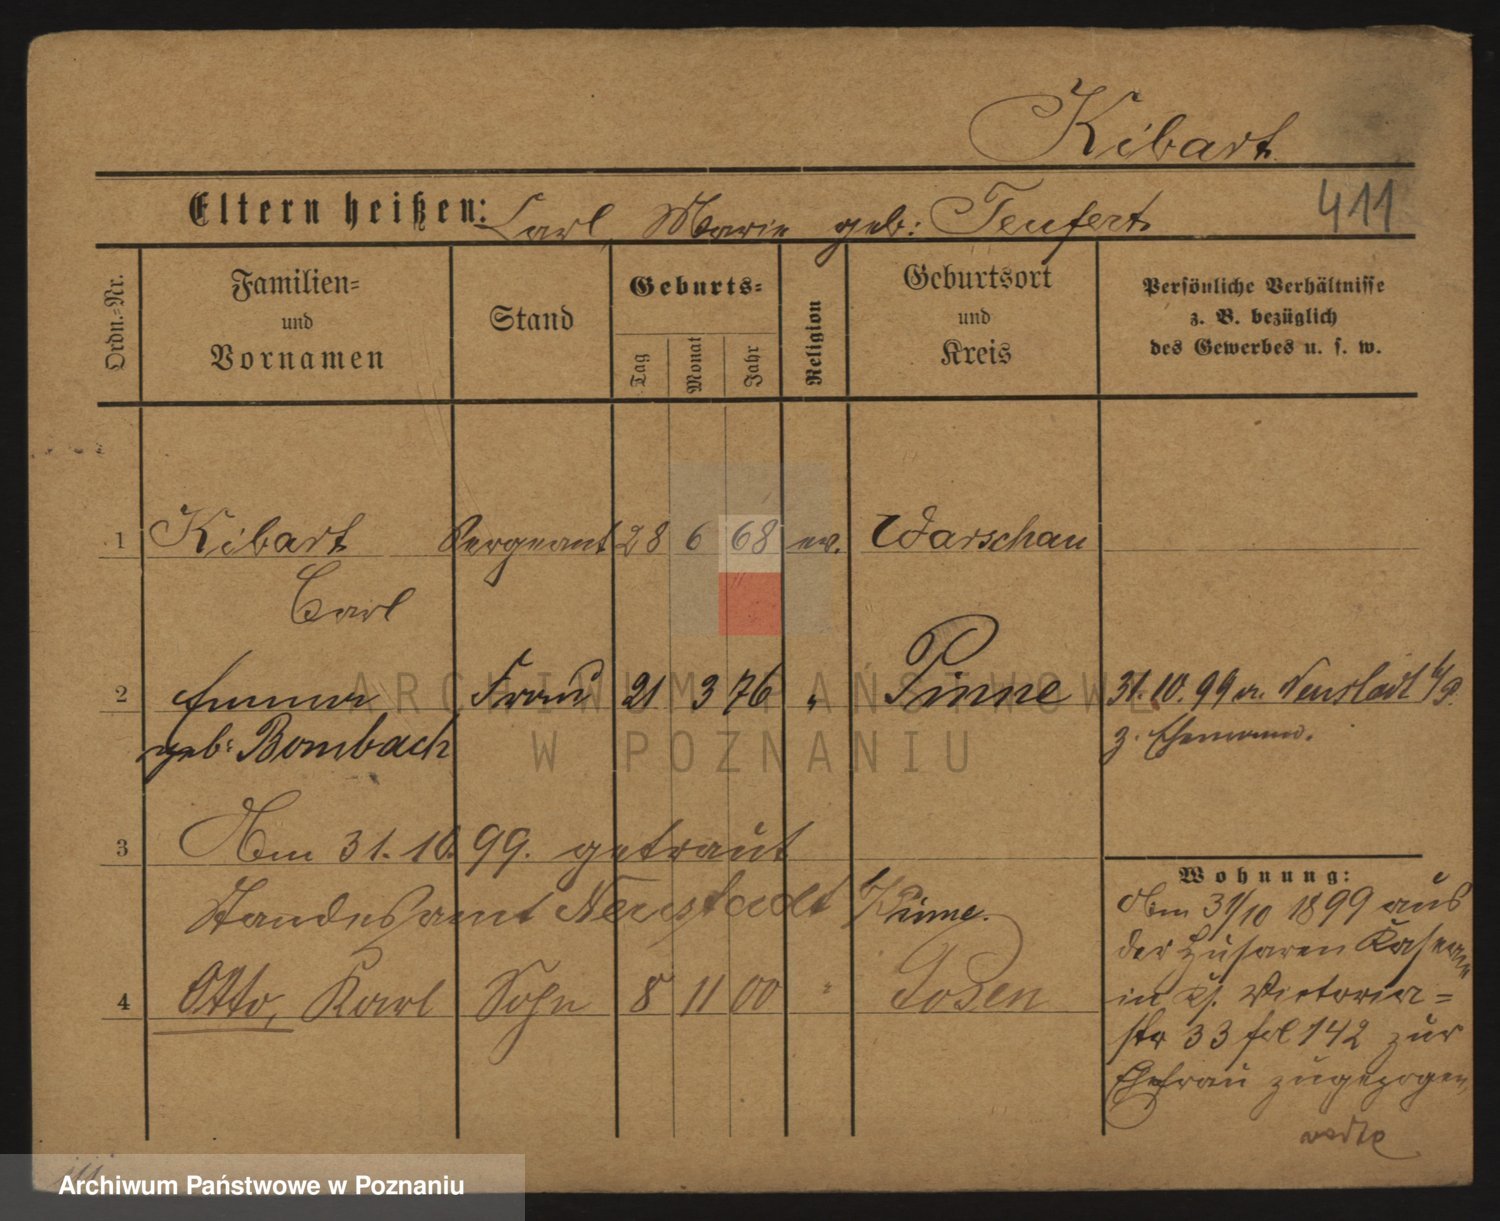 Kibart
Eltern heißen: Carl, Marie geb: Teufert.
411
Ordn.-Nr.
Familien- und Vornamen
Stand
Geburts-
Tag
Monat
Jahr
Religion
Geburtsort und Kreis
Persönliche Verhältnisse
z. B. bezüglich
des Gewerbes u. s. w.
1 Kibart Sergeant 28 6 68 ev. Warschau
Carl
2 Emma Frau 21 3 76 " Pinne 31.10.99 a. Neustadt b/P.
geb: Bombach z. Ehemann.
3 Am 31.10.99. getraut
Standesamt Neustadt b/Pinne.
4 Otto, Karl Sohn 8 11 00 " Posen
Wohnung:
Am 31/10 1899 aus
der Husaren Kaserne
in Victoria=
str 33 fol 142 zur
Ehefrau zugezogen,
ARCHIWUM PAŃSTWOWE
W POZNANIU
Archiwum Państwowe w Poznaniu